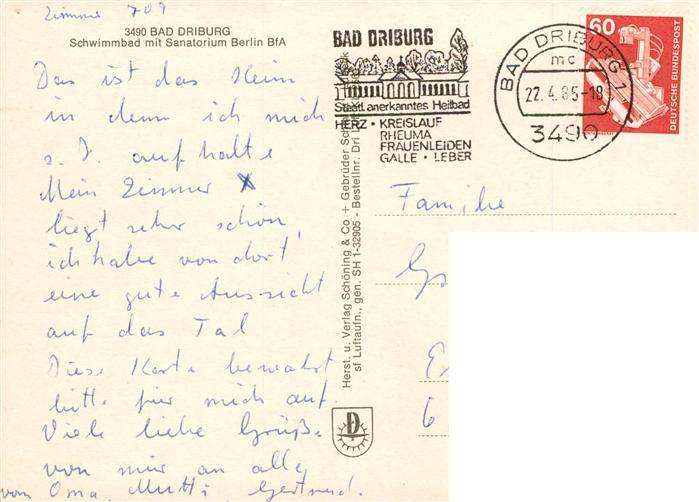 Zimmer 709
3490 BAD DRIBURG
Schwimmbad mit Sanatorium Berlin BfA
Das ist das Heim
in denn ich mich
z. Z. aufhalte
Mein Zimmer X
liegt sehr schön,
ich habe von dort
eine gute Aussicht
auf das Tal
Diese Karte bewahrt
bitte für mich auf.
Viele liebe Grüße
von mir an alle
von Oma, Mutti, Gertrud.
Herst. u. Verlag Schöning & Co + Gebrüder Schmidt
sf Luftaufn., gen. SH 1-32905 - Bestellnr. Dri
BAD DRIBURG
Staatl. anerkanntes Heilbad
HERZ • KREISLAUF
RHEUMA
FRAUENLEIDEN
GALLE • LEBER
BAD DRIBURG 1
mc
22.4.85-18
3490
60
DEUTSCHE BUNDESPOST
Familie
6
D